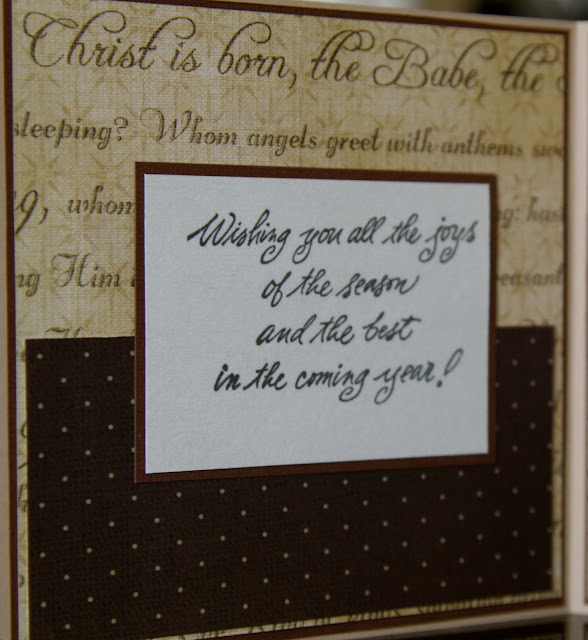 Christ is born, the Babe, the
sleeping? Whom angels greet with anthems
whom
Him
peasant
Wishing you all the joys
of the season
and the best
in the coming year!